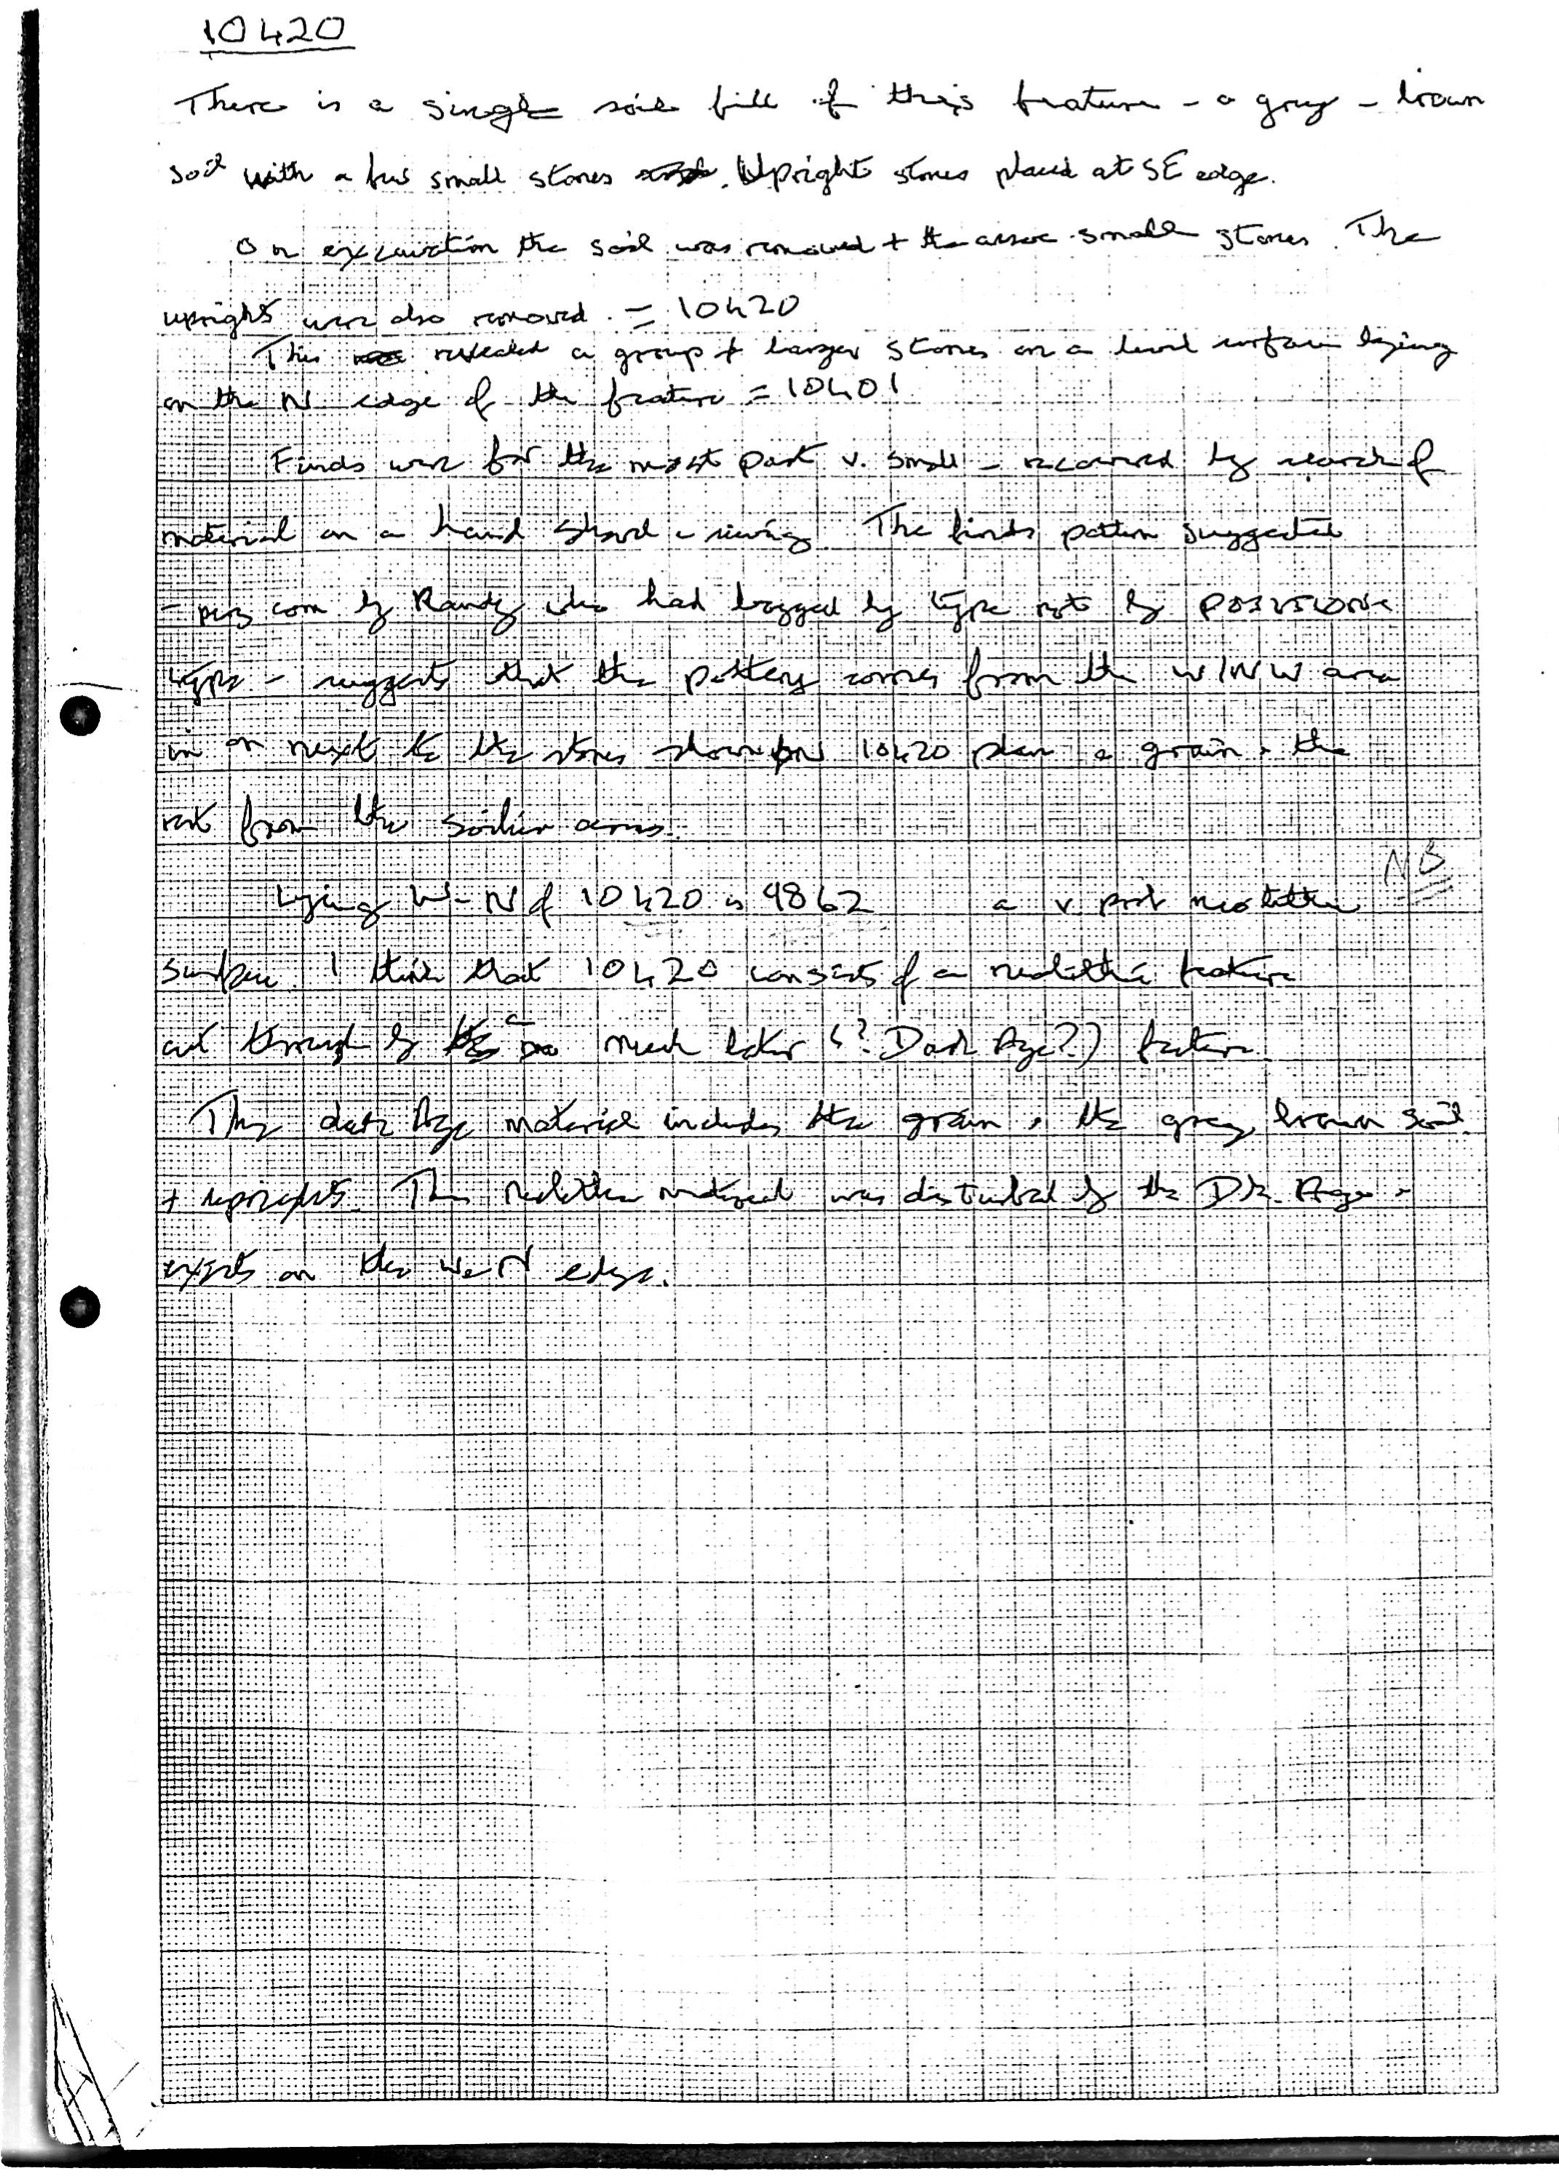 10420
There is a single soil fill of this feature - a grey - brown
soil with a few small stones. Upright stones placed at SE edge.
On excavation the soil was removed + the assoc small stones. The
uprights were also removed. = 10420
This revealed a group of larger stones on a level surface lying
on the N edge of the feature = 10401
Finds were for the most part v. small - recovered by search of
material on a hand shovel - sieving. The finds pattern suggested
- pers com by Randy who had bagged by type not by
type - suggests that the pottery comes from the W/NW area
in or next to the stones shown on 10420 plan & grain + the
rest from the soilier areas.
NB
Lying W-N of 10420 is 9862 a v poss neolithic
surface. I think that 10420 consists of a neolithic feature
cut through by a much later (? Dark Age?) feature.
The dark Age material includes the grain, the grey brown soil
+ uprights. The neolithic material was disturbed by the Dk. Age -
exists on the W-N edge.